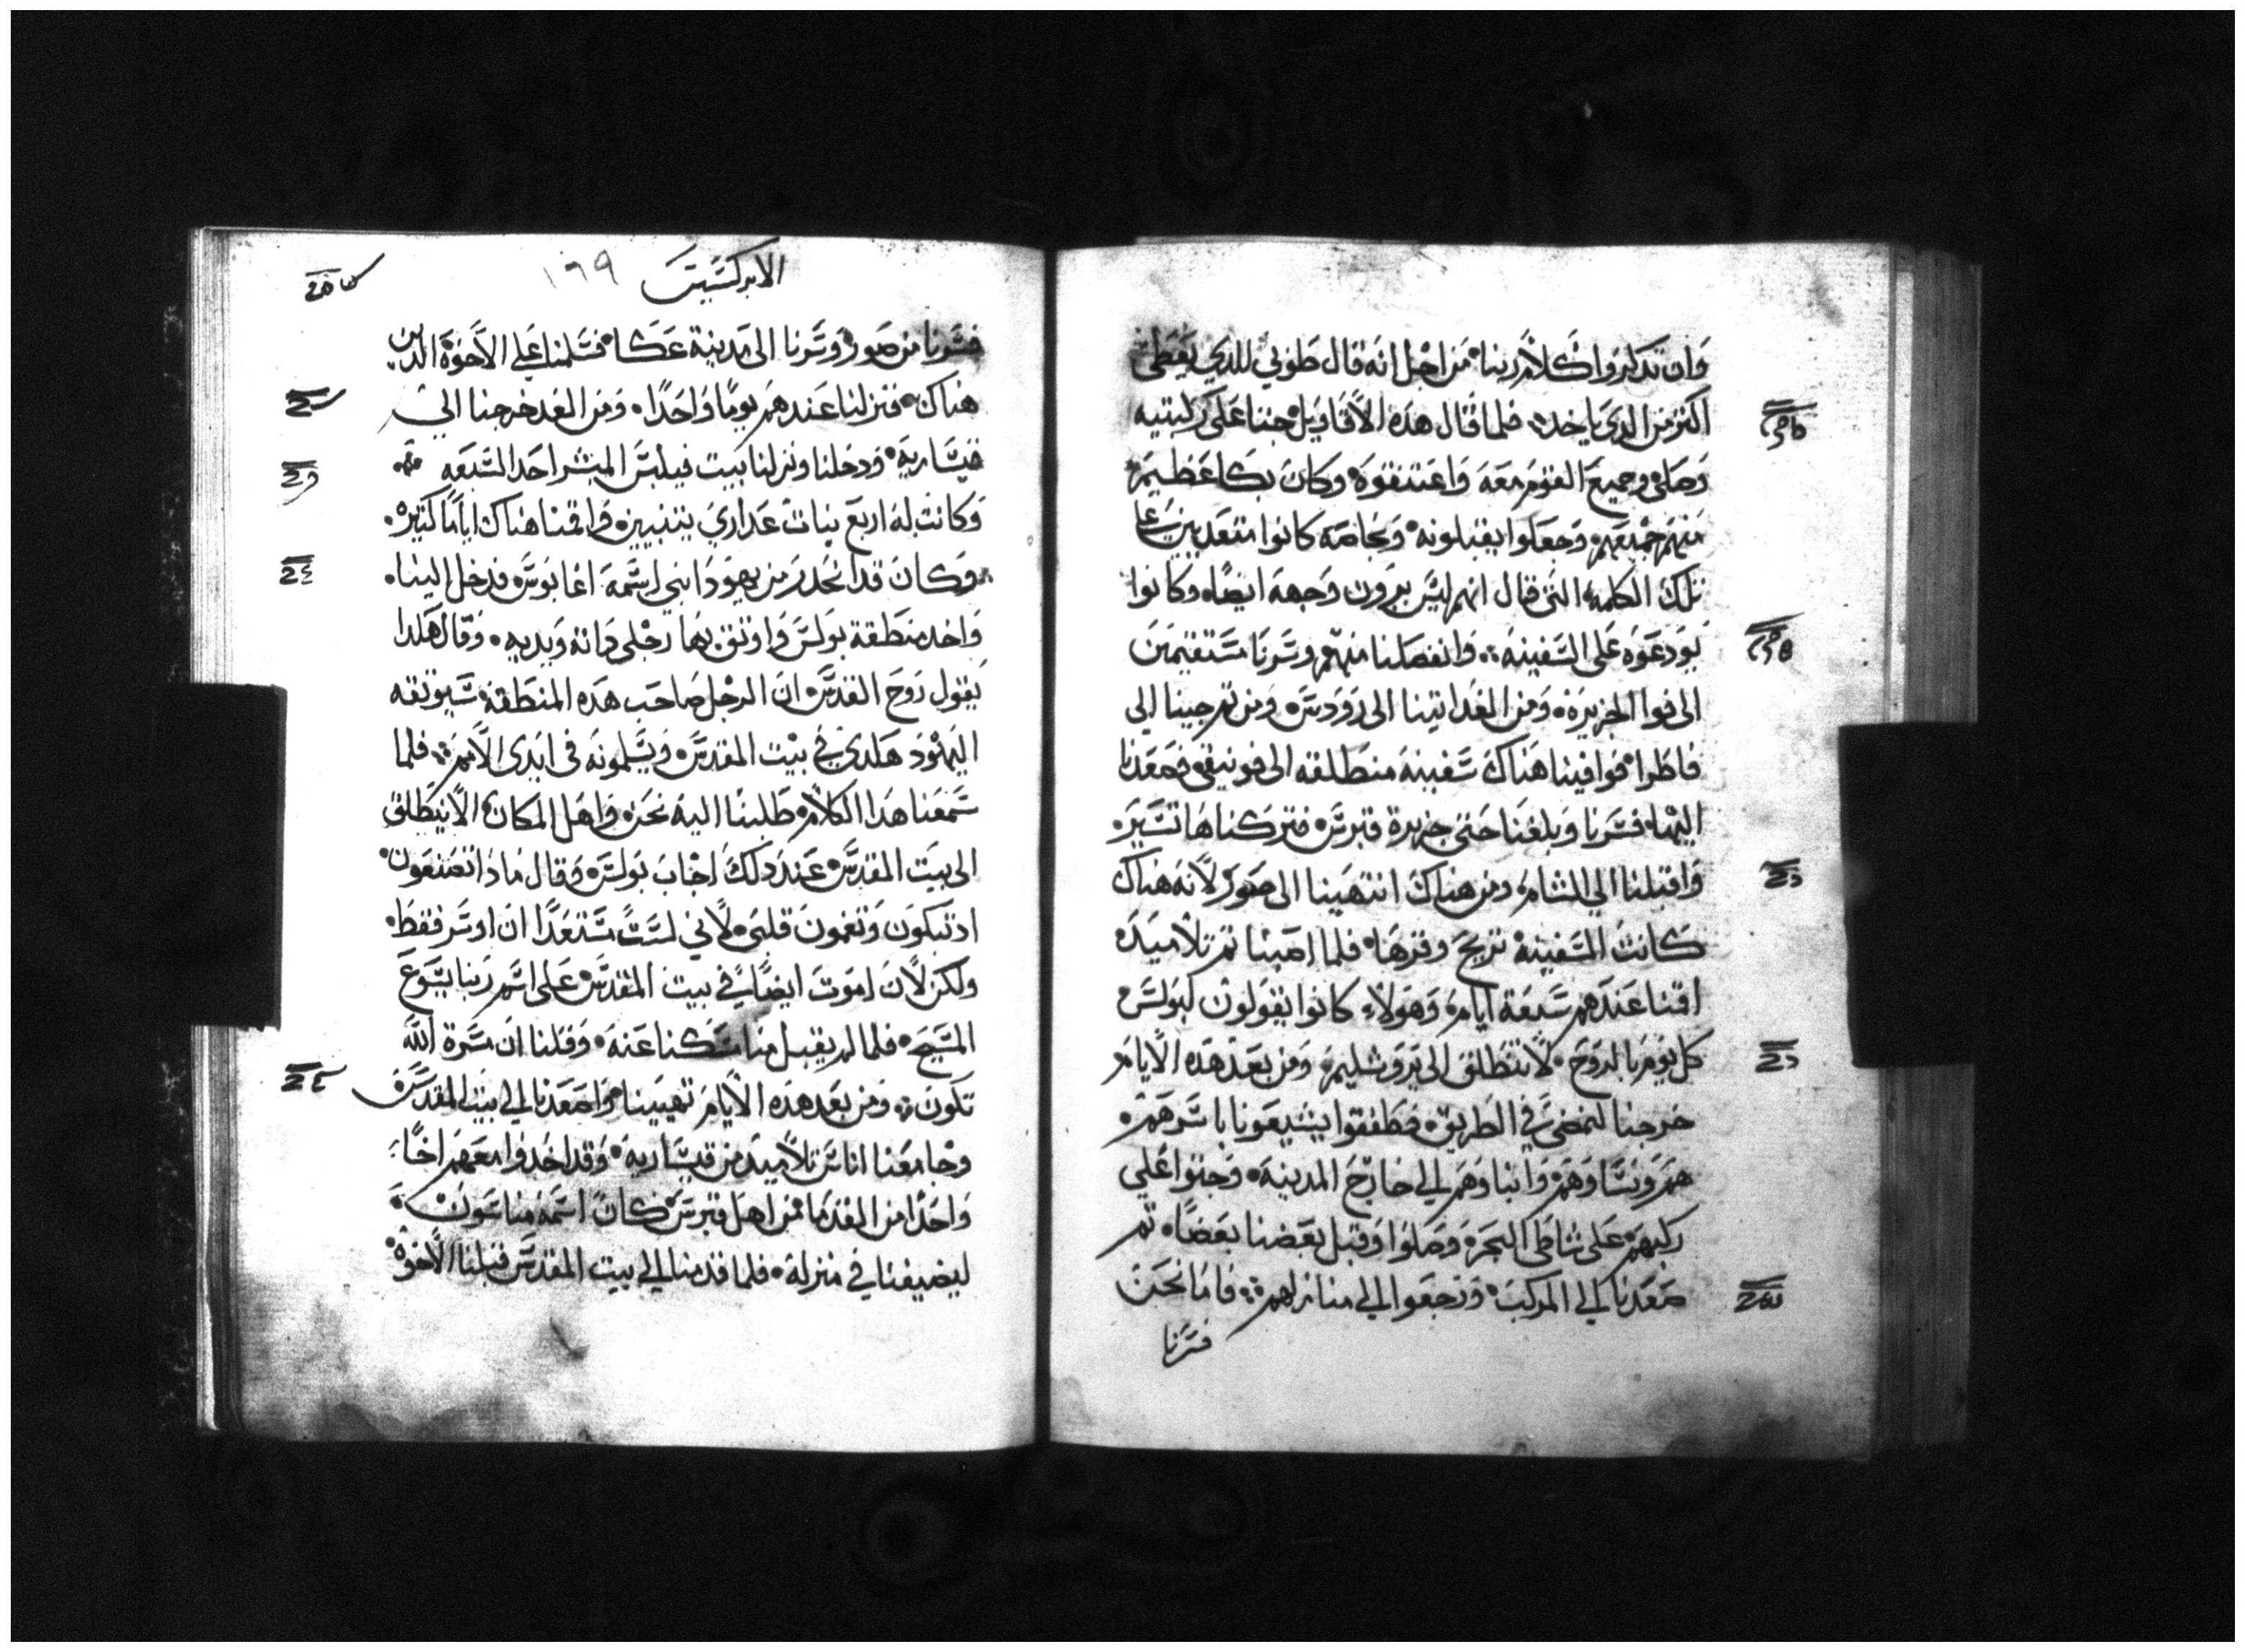 وان تدكروا كلام ربنا من اجل انه قال طوبي للدي يعطي
اكتر من الدي ياخد فلما قال هده الاقاويل جتا على ركبتيه
وصلى وجميع القوم معه واعتنقوه وكان بكا عظيم
منهم جميعهم وجعلوا يقبلونه وبخاصه كانوا متعدبين علي
تلك الكلمه التى قال انهم ليس يرون وجهه ايضا وكانوا
يودعوه على السفينه وانفصلنا منهم وسرنا مستقيمين
الى قوا الجزيرة ومن الغد اتينا الى رودس ومن تم جينا الى
فاطرا فوافينا هناك سفينه منطلقه الى فونيقى فصعدنا
اليها فسرنا وبلغنا حتى جزيرة قبرس فتركناها تسيره
واقبلنا الي الشام ومن هناك انتهينا الى صور لانه هناك
كانت السفينة تريح وقرها فلما اصبنا تم تلاميده
اقمنا عندهم سبعة ايام وهولاء كانوا يقولون لبولس
كل يوم بالروح لا تنطلق الى يروشليم ومن بعد هده الايام
خرجنا لنمضى في الطريق فطفقوا يشيعونا باسرهم
هم ونساوهم وابناوهم الي خارج المدينة وجتوا علي
ركبهم على شاطى البحر وصلوا وقبل بعضنا بعضا تم
صعدنا الي المركب ورجعوا الي منازلهم فاما نحن
فسرنا
الابركسيس ١٩٩
فسرنا من صور وسرنا الى مدينة عكا فسلمنا علي الاخوة الدين
هناك فنزلنا عندهم يوما واحدا ومن الغد خرجنا الي
قيسارية ودخلنا ونزلنا بيت فيلبس المبشر احد السبعه
وكانت له اربع بنات عداري يتنبيين واقمنا هناك اياما كتيره
وكان قد انحدر من يهودا نبي اسمه اغابوس فدخل الينا
واخد منطقة بولس واوتق بها رجلى داته ويديه وقال هكدا
يقول روح القدس ان الرجل صاحب هده المنطقة سيوتقه
اليهود هكدى في بيت المقدس ويسلمونه فى ايدى الامم فلما
سمعنا هدا الكلام طلبنا اليه نحن واهل المكان الا ينطلق
الى بيت المقدس عند دلك اجاب بولس وقال مادا تصنعون
اد تبكون وتغمون قلبى لاني لست مستعدا ان اوسر فقط
ولكن لان اموت ايضا في بيت المقدس على اسم ربنا يسوع
المسيح فلما لم يقبل منا سكتنا عنه وقلنا ان مسرة الله
تكون ومن بعد هده الايام تهيينا وصعدنا الي بيت المقدس
وجا معنا اناس تلاميد من قيسارية وقد اخدوا معهم اخا
واحدا من القدما من اهل قبرس كان اسمه مناسون
ليضيفنا في منزله فلما قدمنا الي بيت المقدس قبلنا الاخوة